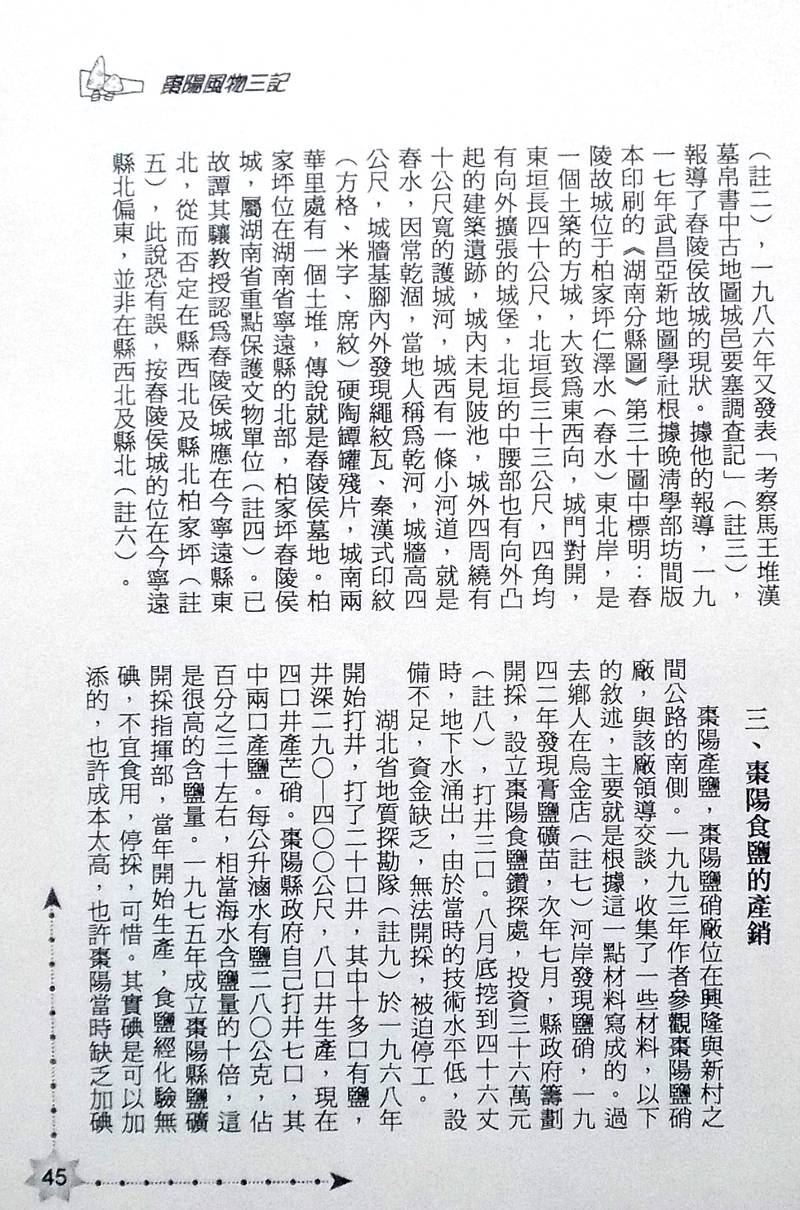 棗陽風物三記
（註二），一九八六年又發表「考察馬王堆漢
墓帛書中古地圖城邑要塞調查記」（註三），
報導了舂陵侯故城的現狀。據他的報導，一九
一七年武昌亞新地圖學社根據晚淸學部坊間版
本印刷的《湖南分縣圖》第三十圖中標明：舂
陵故城位于柏家坪仁澤水（舂水）東北岸，是
一個土築的方城，大致爲東西向，城門對開，
東垣長四十公尺，北垣長三十三公尺，四角均
有向外擴張的城堡，北垣的中腰部也有向外凸
起的建築遺跡，城內未見陂池，城外四周繞有
十公尺寬的護城河，城西有一條小河道，就是
舂水，因常乾涸，當地人稱爲乾河，城牆高四
公尺，城牆基腳內外發現繩紋瓦、秦漢式印紋
（方格、米字、席紋）硬陶罈罐殘片，城南兩
華里處有一個土堆，傳說就是舂陵侯墓地。柏
家坪位在湖南省寧遠縣的北部，柏家坪舂陵侯
城，屬湖南省重點保護文物單位（註四）。已
故譚其驤教授認爲舂陵侯城應在今寧遠縣東
北，從而否定在縣西北及縣北柏家坪（註
五），此說恐有誤，按舂陵侯城的位在今寧遠
縣北偏東，並非在縣西北及縣北（註六）。
三、棗陽食鹽的產銷
棗陽產鹽，棗陽鹽硝廠位在興隆與新村之
間公路的南側。一九九三年作者參觀棗陽鹽硝
廠，與該廠領導交談，收集了一些材料，以下
的敘述，主要就是根據這一點材料寫成的。過
去鄉人在烏金店（註七）河岸發現鹽硝，一九
四二年發現膏鹽礦苗，次年七月，縣政府籌劃
開採，設立棗陽食鹽鑽探處，投資三十六萬元
（註八），打井三口。八月底挖到四十六丈
時，地下水涌出，由於當時的技術水平低，設
備不足，資金缺乏，無法開採，被迫停工。
湖北省地質探勘隊（註九）於一九六八年
開始打井，打了二十口井，其中十多口有鹽，
井深二九〇—四〇〇公尺，八口井生產，現在
四口井產芒硝。棗陽縣政府自己打井七口，其
中兩口產鹽。每公升滷水有鹽二八〇公克，佔
百分之三十左右，相當海水含鹽量的十倍，這
是很高的含鹽量。一九七五年成立棗陽縣鹽礦
開採指揮部，當年開始生產，食鹽經化驗無
碘，不宜食用，停採，可惜。其實碘是可以加
添的，也許成本太高，也許棗陽當時缺乏加碘
45